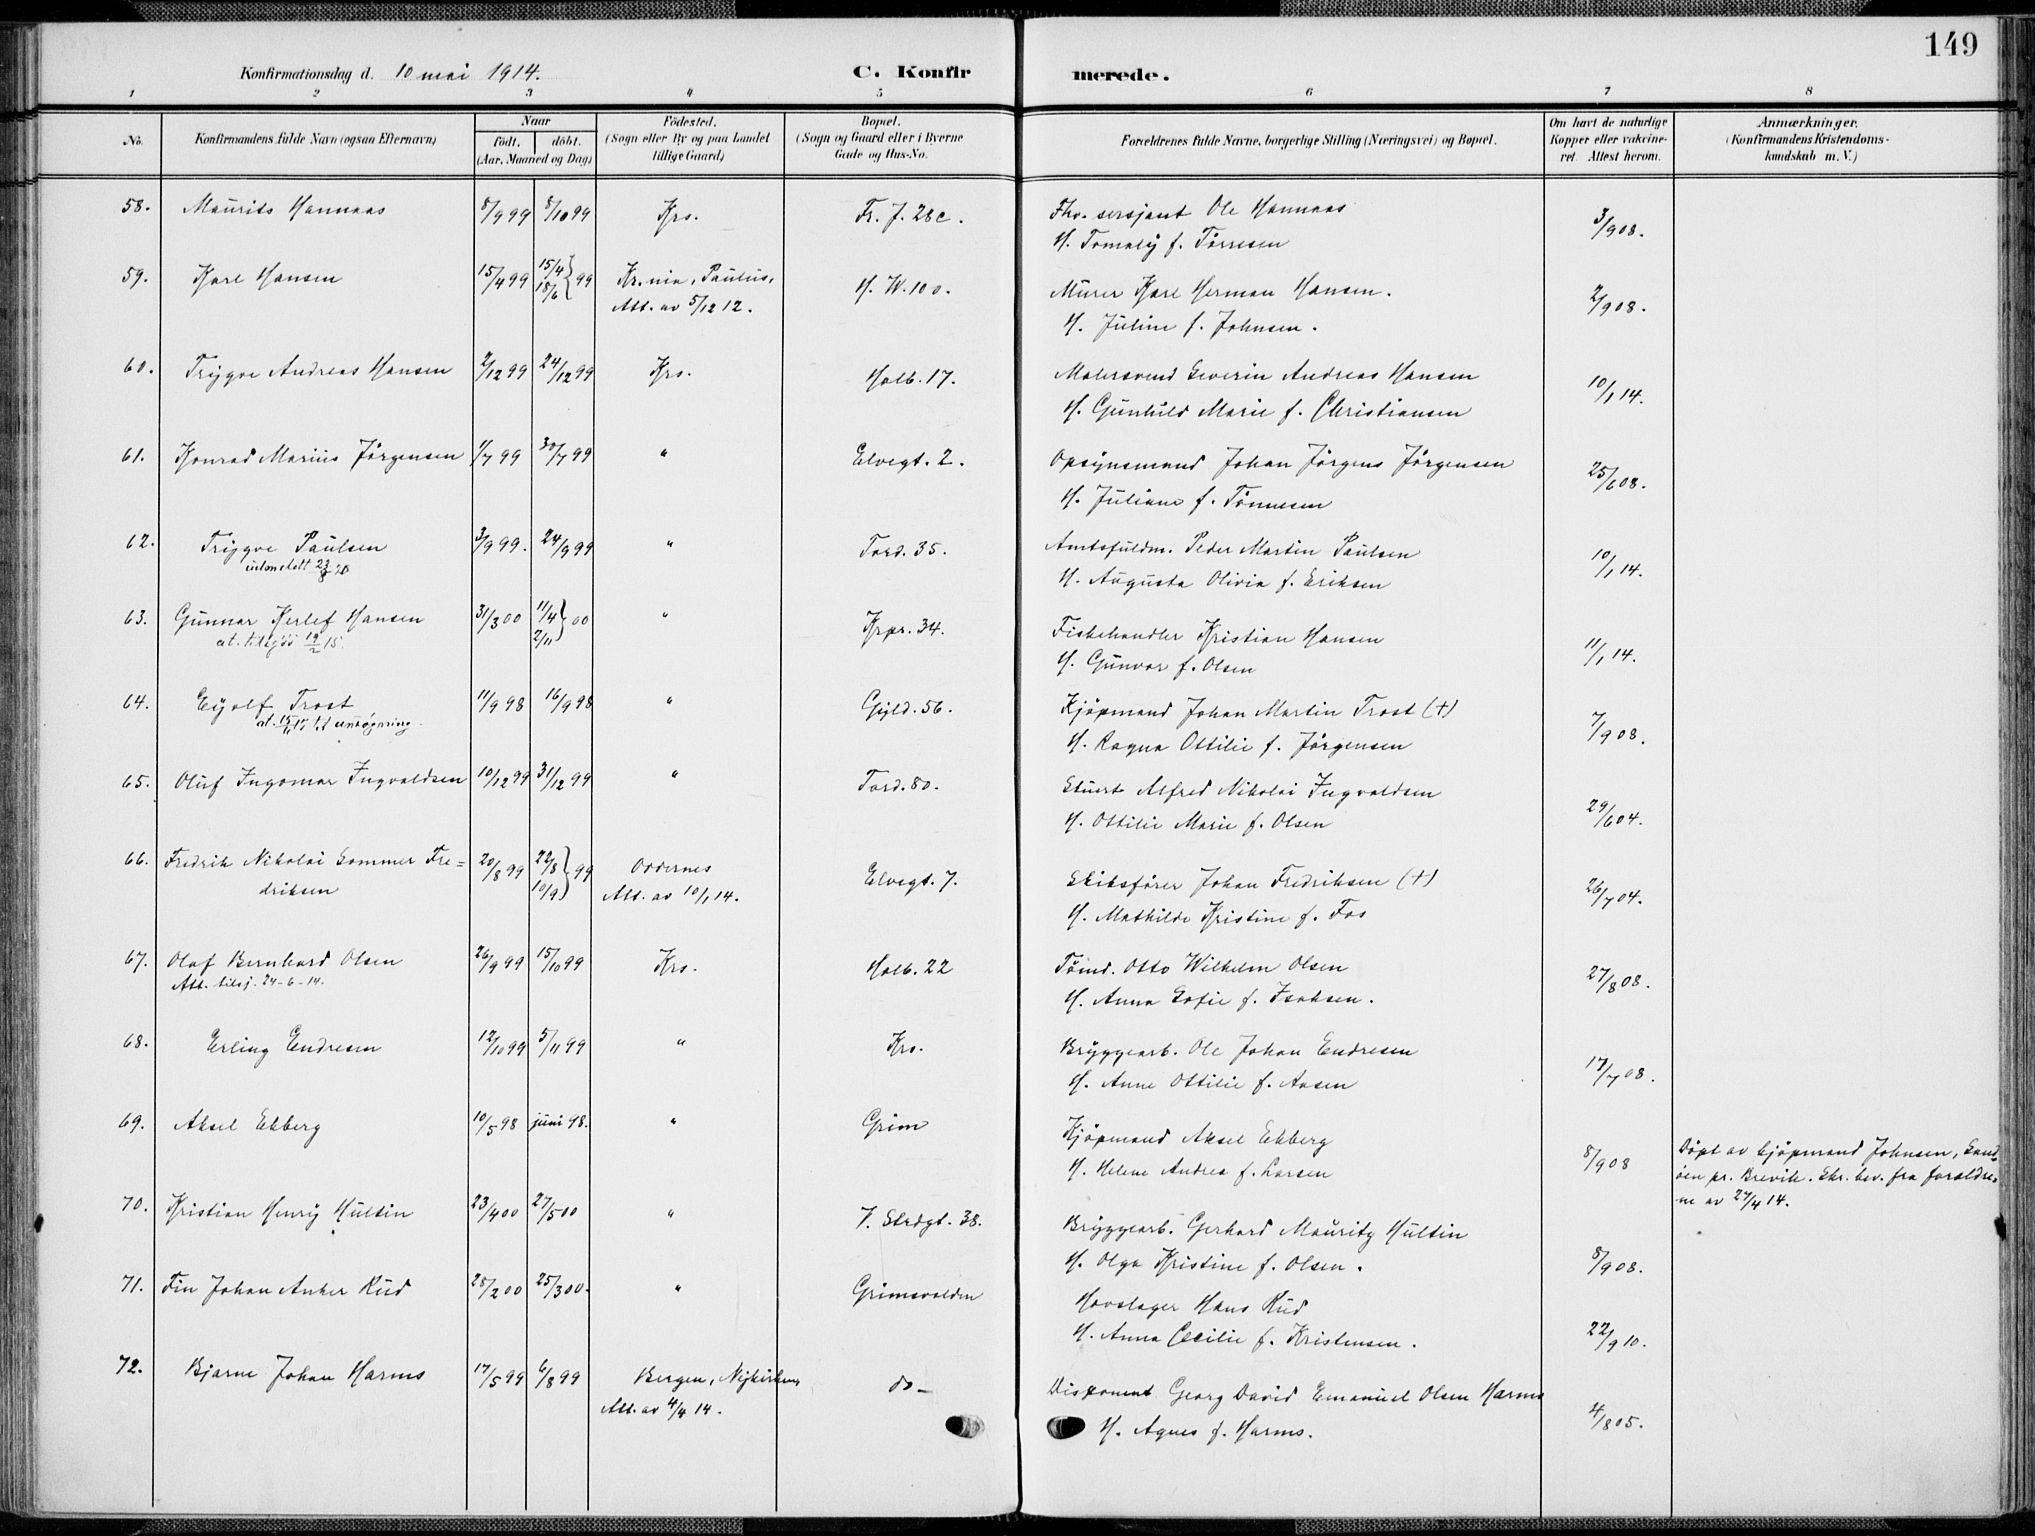 149
Konfirmationsdag d. 10 mai 1914.
C. Konfirmerede.
1 2 3 4 5 6 7 8
No.
Konfirmandens fulde Navn (ogsaa Efternavn)
Naar
födt. döbt.
(Aar, Maaned og Dag)
Födested.
(Sogn eller By og paa Landet
tillige Gaard)
Bopæl.
(Sogn og Gaard eller i Byerne
Gade og Hus-No.
Forældrenes fulde Navne, borgerlige Stilling (Næringsvei) og Bopæl.
Om havt de naturlige
Kopper eller vakcine-
ret. Attest herom.
Anmærkninger.
(Konfirmandens Kristendoms-
kundskab m. V.)
58. Maurits Hannaas 8/9 99 8/10 99 Krs. Fr. J. 28c. Fhv. sersjant Ole Hannaas 3/9 08.
H. Tomaly f. Tørresen
59. Karl Hansen 15/4 99 15/4 18/6 } 99 Kr.nia, Paulus, H. W. 100. Murer Karl Herman Hansen. 2/9 08.
Att. av 5/12 12. H. Juline f. Johnsen.
60. Trygve Andreas Hansen 2/12 99 24/12 99 Krs. Holb. 17. Malersvend Severin Andreas Hansen 10/1 14.
H. Gunhild Marie f. Christiansen
61. Konrad Marius Jørgensen 1/7 99 30/7 99 " Elvegt. 2. Opsynsmand Johan Jørgens Jørgensen 25/6 08.
H. Juliane f. Tønnesen
62. Trygve Paulsen 3/9 99. 24/9 99 " Tord. 35. Amtsfuldm. Peder Martin Paulsen 10/1 14.
utmeldt 23/8 20 H. Augusta Olivia f. Eriksen
63. Gunnar Kerlef Hansen 31/3 00 11/4 2/11 } 00 " Krpr. 34. Fiskehandler Kristian Hansen 11/1 14.
at. tilsjøs 19/2 15. H. Gunvor f. Olsen
64. Eyolf Trost 11/9 98 16/9 98 " Gyld. 56. Kjøpmand Johan Martin Trost (+) 7/9 08.
H. Ragna Ottilie f. Jørgensen
65. Oluf Ingomar Ingvaldsen 10/12 99 31/12 99 " Tord. 80. Stuert Alfred Nikolai Ingvaldsen 29/6 04.
H. Ottilie Marie f. Olsen
66. Fredrik Nikolai Sommer Fre=
driksen 20/8 99 22/8 10/9 } 99 Oddernes Elvegt. 7. Skibsfører Johan Fredriksen (+) 26/7 04.
Att. av 10/1 14. H. Mathilde Kristine f. Fos
67. Olaf Bernhard Olsen 26/9 99 15/10 99 Krs. Holb. 22 Tømd. Otto Wilhelm Olsen 27/8 08.
Att. tilsj. 24-6-14. H. Anna Sofie f. Isaksen.
68. Erling Endresen 12/10 99 5/11 99 " Krs. Bryggearb. Ole Johan Endresen 17/7 08.
H. Anne Ottilie f. Aasen
69. Aksel Ekberg 10/5 98 juni 98. " Grim Kjøpmand Aksel Ekberg 8/9 08
H. Helene Andrea f. Larsen
Døpt av kjøpmand Johnsen, Sand=
øen pr. Brevik. Skr. bev. fra forældre=
ne av 27/4 14.
70. Kristian Henry Hultin 23/4 00 27/5 00 " V. Strdgt. 38. Bryggearb. Gerhard Mauritz Hultin 8/9 08.
H. Olga Kristine f. Olsen.
71. Fin Johan Anker Rud 28/2 00 25/3 00. " Grimsvolden Hovslager Hans Rud 22/9 10.
H. Anna Cecilie f. Kristensen.
72. Bjarne Johan Harms 17/5 99 6/8 99 Bergen, Nykirken do- Disponent Georg David Emanuel Olsen Harms 4/8 05.
Att. av 4/4 14. H. Agnes f. Harms.